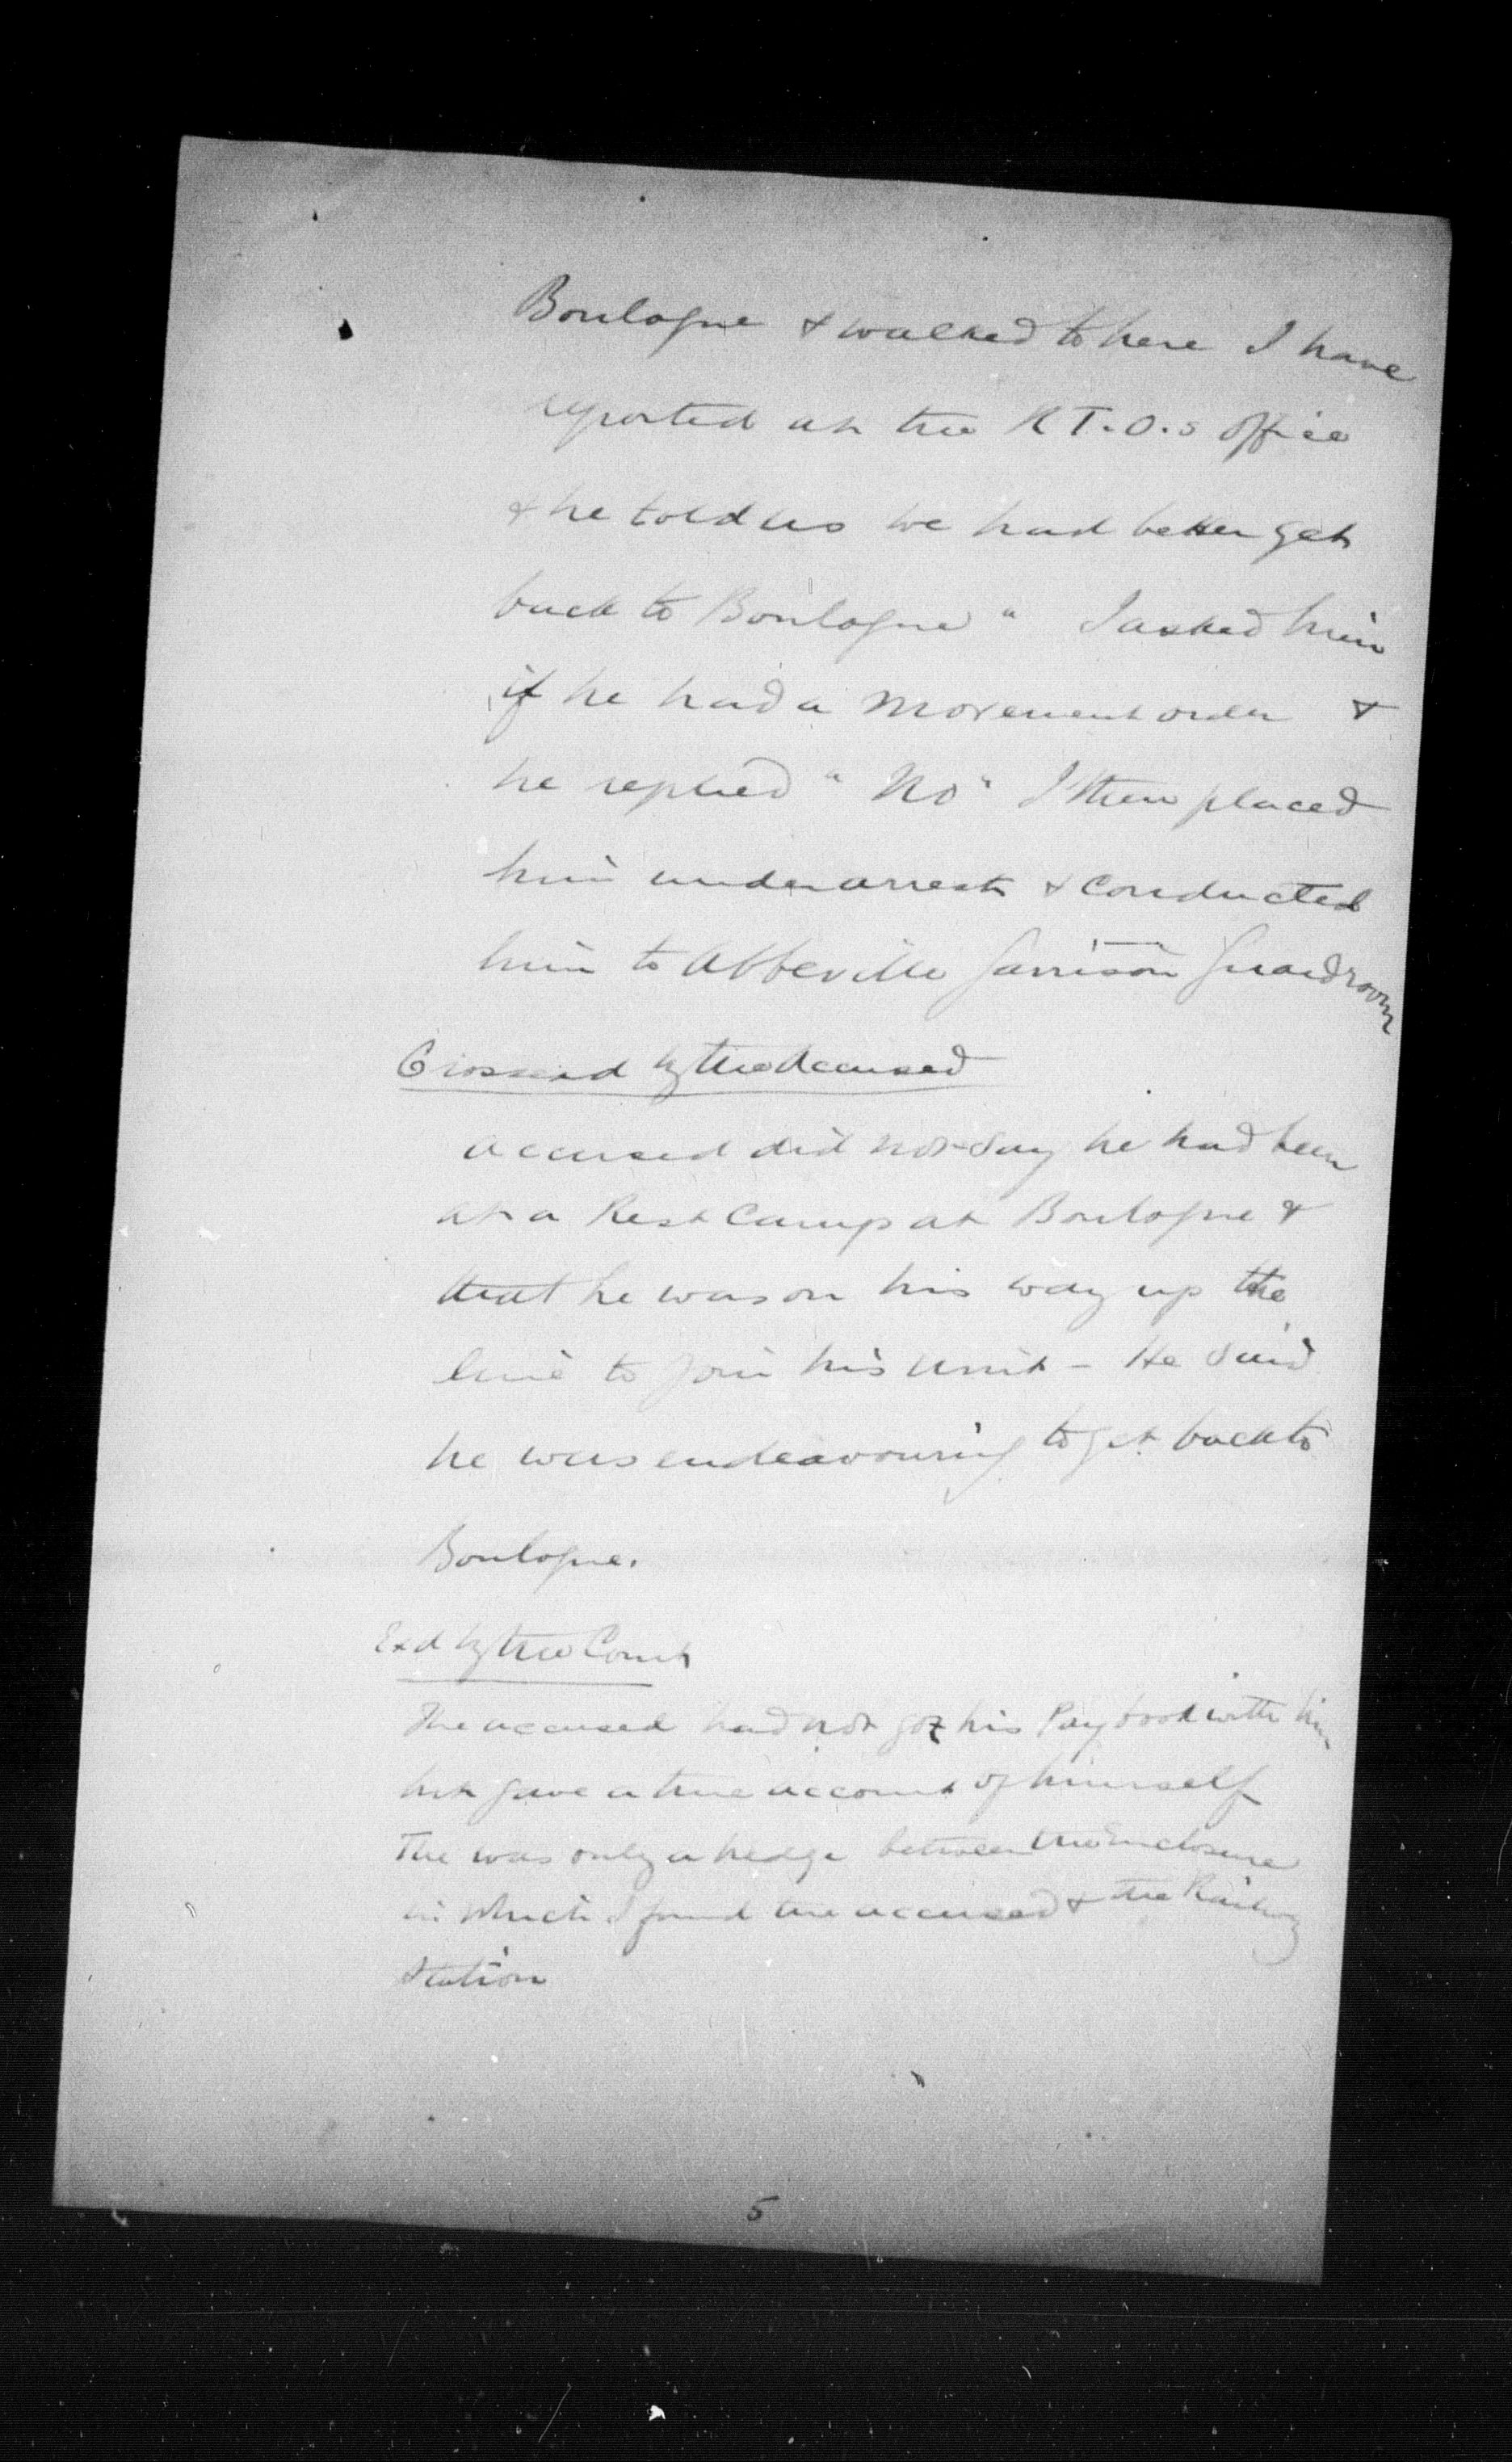 Boulogne & walked to here I have
reported at the R T.O.s office
& he told us we had better get
back to Boulogne " I asked him
if he had a movement order &
he replied " No " I then placed
him under arrest & conducted
him to Abbeville Garrison Guardroom
Crossexd by the Accused
accused did not say he had been
at a Rest Camp at Boulogne &
that he was on his way up the
line to join his unit – He said
he was endeavouring to get back to
Boulogne.
Exd by the Court
The accused had not got his Paybook with him
but gave a true account of himself
The was only a hedge between the enclosure
in which I found the accused & the Railway
station
5